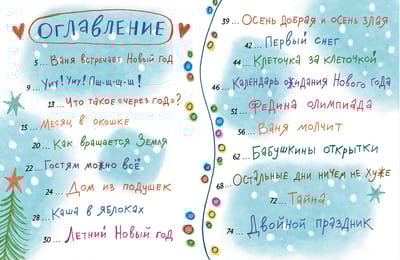 Оглавление
5... Ваня встречает Новый год
9... Уиу! Уиу! Пш-ш-ш-ш!
13... Что такое «через год»?
15... Месяц в окошке
20... Как вращается Земля
22... Гостям можно всё
24... Дом из подушек
28... Каша в яблоках
30... Летний Новый год
39... Осень добрая и осень злая
42... Первый снег
44... Клеточка за клеточкой
46... Календарь ожидания Нового года
51... Федина олимпиада
56... Ваня молчит
62... Бабушкины открытки
68... Остальные дни ничем не хуже
72... Тайна
74... Двойной праздник